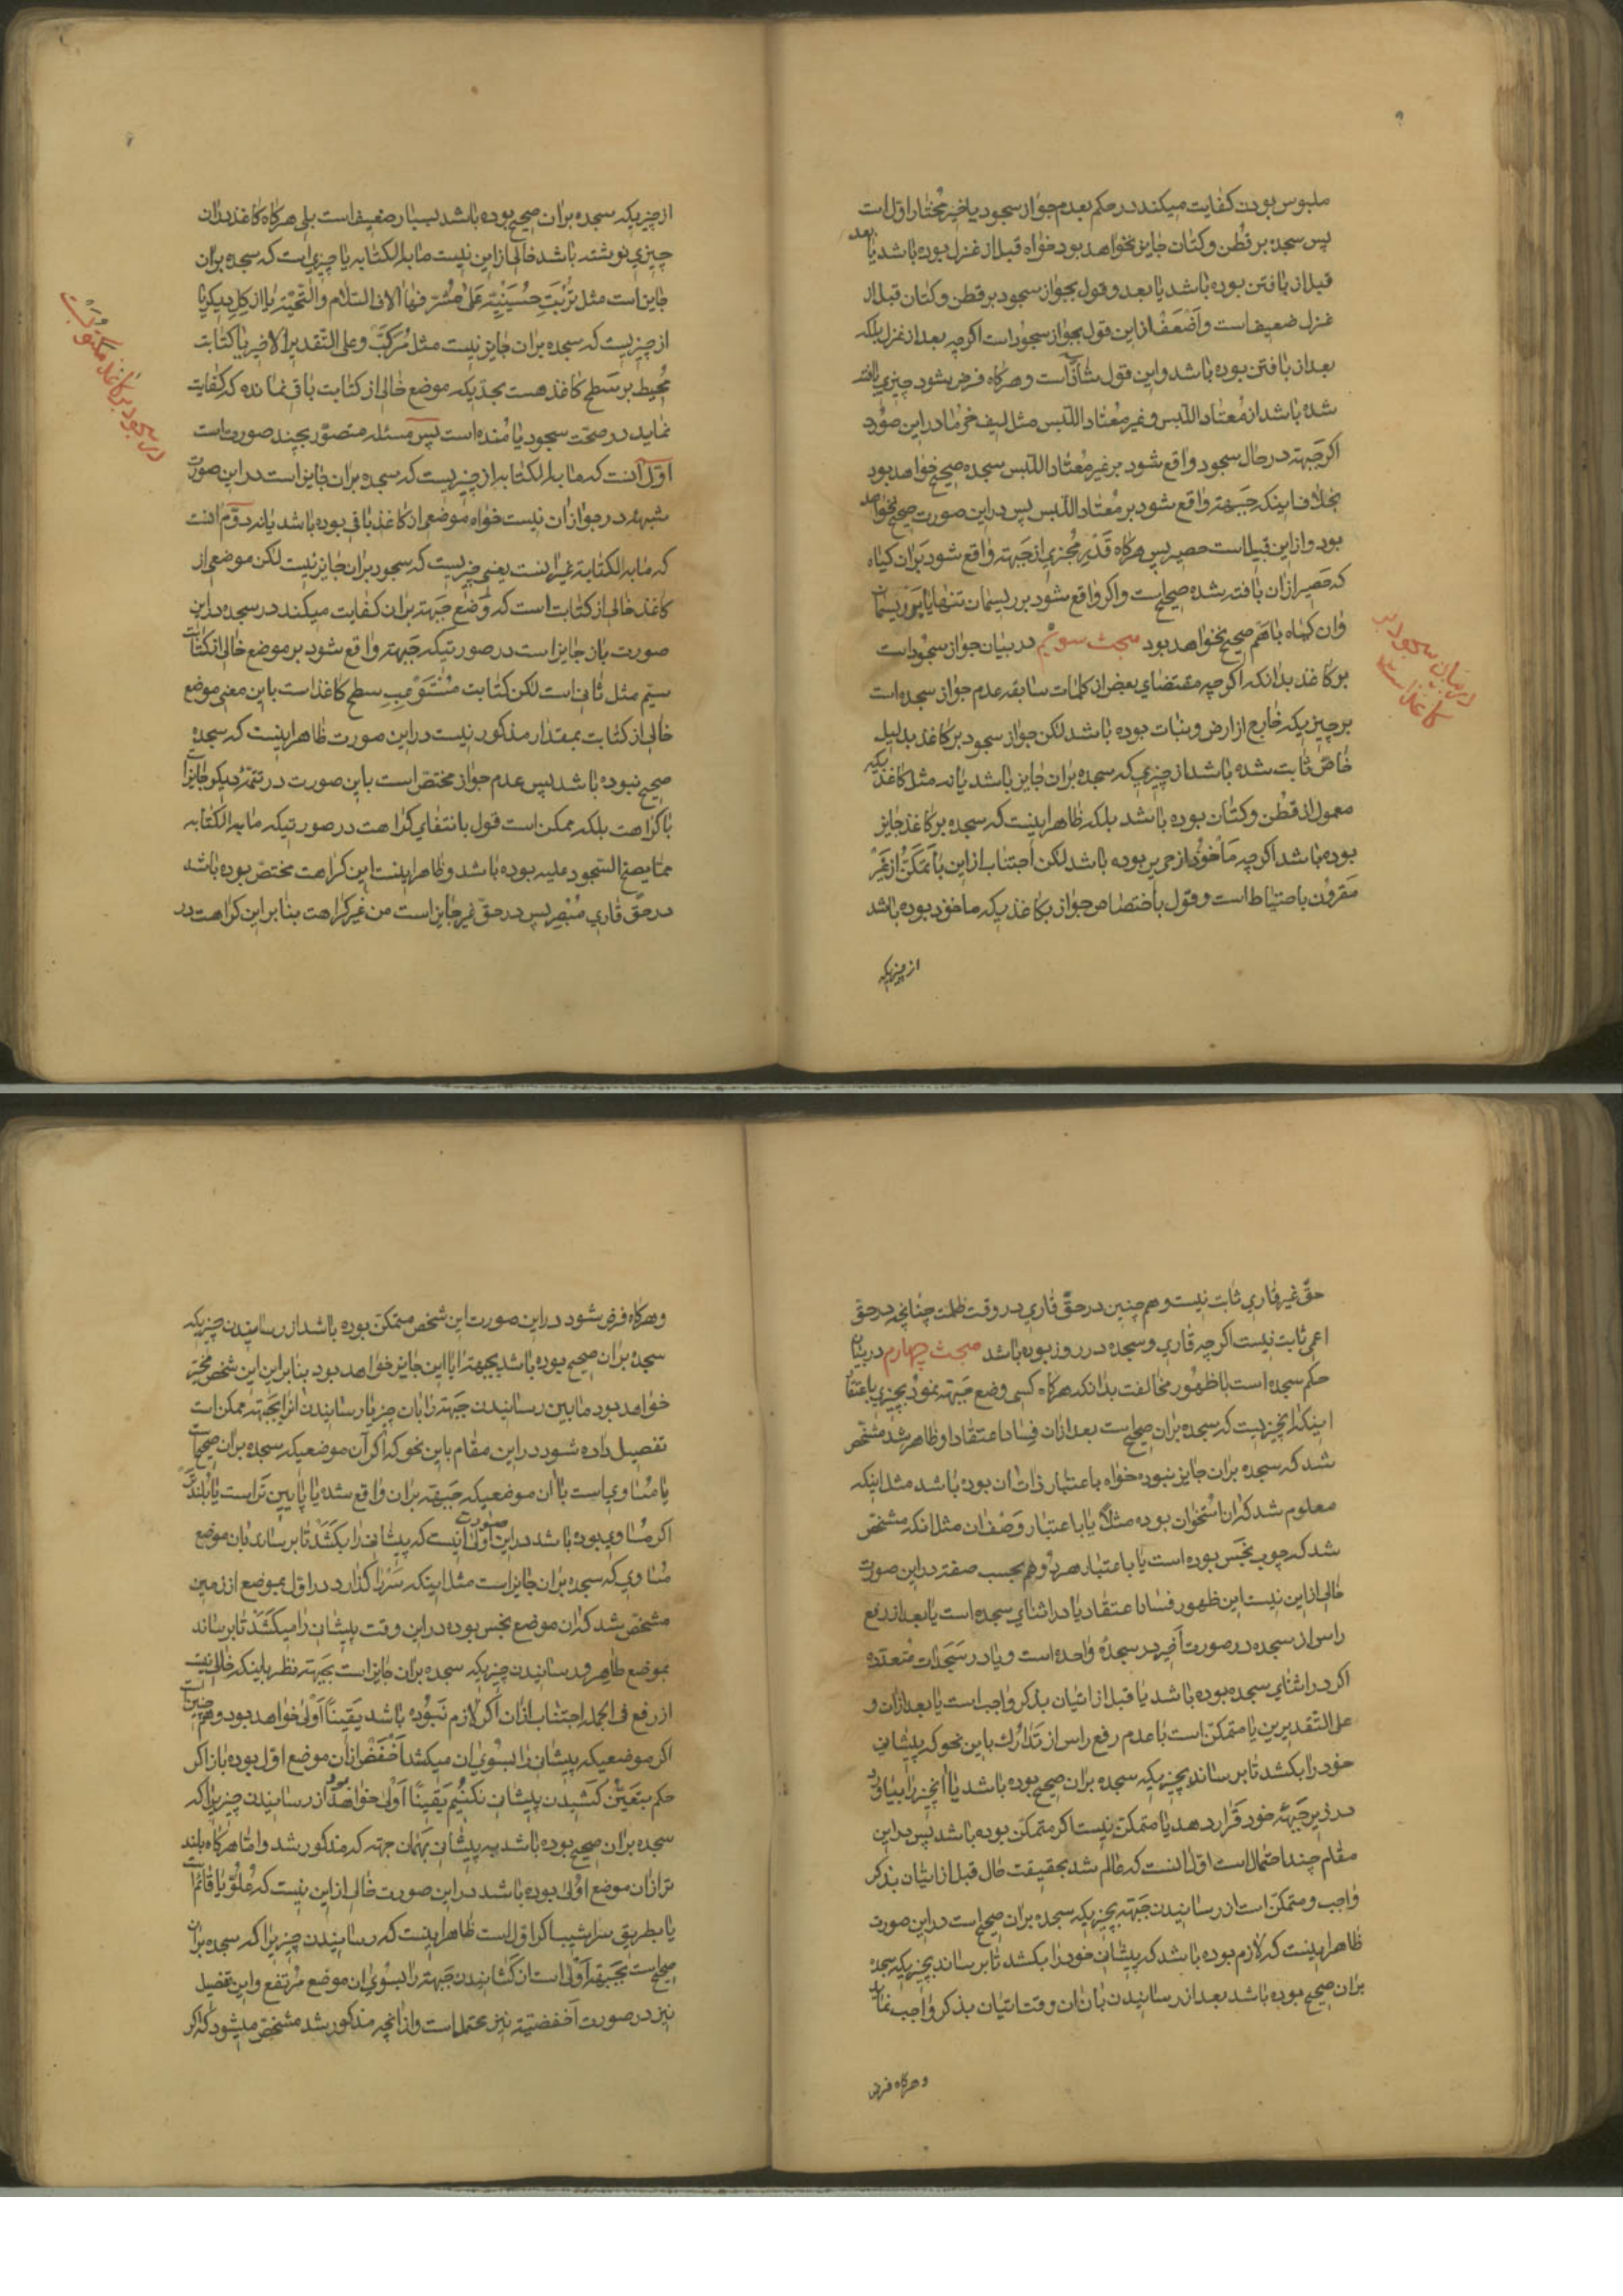 ملبوس بودن کفایت میکند در حکم بعدم جواز سجود یا خیر مختار اول است
پس سجده بر قطن و کتان جایز نخواهد بود خواه قبل از غزل بوده باشد یا بعد
قبل از بافتن بوده باشد یا بعد و قول بجواز سجود بر قطن و کتان قبل از
غزل ضعیف است و اضعف از این قول بجواز سجود است اکرچه بعد از غزل بلکه
بعد از بافتن بوده باشد و این قول شاذ است و هرکاه فرض شود چیزی بافته
شده باشد از معتاد اللبس و غیر معتاد اللبس مثل لیف خرما در این صورت
اکر جبهه در حال سجود واقع شود بر غیر معتاد اللبس سجده صحیح خواهد بود
بخلاف اینکه جبهه واقع شود بر معتاد اللبس پس در این صورت صحیح نخواهد
بود و از این قبیل است حصیر پس هرکاه قدر مجزی از جبهه واقع شود بران کیاه
که حصیر ازان بافته شده صحیح است و اکر واقع شود بر ریسمان تنها یا بر ریسمان
وان کیاه باهم صحیح نخواهد بود مبحث سویم در بیان جواز سجود است
بر کاغذ بدانکه اکرچه مقتضای بعض از کلمات سابقه عدم جواز سجده است
بر چیزیکه خارج از ارض و نبات بوده باشد لکن جواز سجود بر کاغذ بدلیل
خاص ثابت شده باشد از چیزی که سجده بران جایز باشد یا نه مثل کاغذیکه
معمول از قطن و کتان بوده باشد بلکه ظاهر اینست که سجده بر کاغذ جایز
بوده باشد اکرچه ماخوذ از حریر بوده باشد لکن اجتناب از این با تمکن از غیر
مقرون باحتیاط است و قول باختصاص جواز بکاغذیکه ماخوذ بوده باشد
از چیزیکه
در بیان سجود بر
کاغذ است
از چیزیکه سجده بران صحیح بوده باشد بسیار ضعیف است بلی هرکاه کاغذ بران
چیزی نوشته باشد خالی از این نیست ما به الکتابه یا چیزی است که سجده بران
جایز است مثل تربت حسینیه علی مشرفها الاف السلام والتحیة یا از کل دیکر یا
از چیزیست که سجده بران جایز نیست مثل مرکب و علی التقدیر الاخیر یا کتابت
محیط بر سطح کاغذ هست بحدیکه موضع خالی از کتابت باقی نمانده که کفایت
نماید در صحت سجود یا مانده است پس مسئله متصور بچند صورت است
اول آنست که ما به الکتابه از چیزیست که سجده بران جایز است در این صورت
شبهه در جواز ان نیست خواه موضعی از کاغذ باقی بوده باشد یا نه دوم انست
که ما به الکتابه غیر انست یعنی چیزیست که سجود بران جایز نیست لکن موضعی از
کاغذ خالی از کتابت است که وضع جبهه بران کفایت میکند در سجده در این
صورت باز جایز است در صورتیکه جبهه واقع شود بر موضع خالی از کتابت
سیم مثل ثانی است لکن کتابت مستوعب سطح کاغذ است باین معنی موضع
خالی از کتابت بمقدار مذکور نیست در این صورت ظاهر اینست که سجده
صحیح نبوده باشد پس عدم جواز مختص است باین صورت در تتمه دیکر جایز است
با کراهت بلکه ممکن است قول بانتفای کراهت در صورتیکه ما به الکتابه
مما یصح السجود علیه بوده باشد و ظاهر اینست این کراهت مختص بوده باشد
در حق قاری مبصر پس در حق غیر جایز است من غیر کراهت بنابراین کراهت در
در سجود بر کاغذ مکتوبست
حق غیر قاری ثابت نیست و هم چنین در حق قاری در وقت ظلمت چنانچه در حق
اعمی ثابت نیست اکرچه قاری و سجده در روز بوده باشد مبحث چهارم در بیان
حکم سجده است با ظهور مخالفت بدانکه هرکاه کسی وضع جبهه نمود بچیزی باعتقاد
اینکه انچیزیست که سجده بران صحیح است بعد ازان فساد اعتقاد او ظاهر شد مشخص
شد که سجده بران جایز نبوده خواه باعتبار ذات ان بوده باشد مثل اینکه
معلوم شد که ان استخوان بوده مثلاً یا باعتبار وصف ان مثل انکه مشخص
شد که چوب نجس بوده است یا باعتبار هر دو هم بحسب صفته در این صورت
خالی از این نیست این ظهور فساد اعتقاد یا در اثنای سجده است یا بعد از رفع
راس از سجده در صورت اخیر در سجدۀ واحده است و یا در سجدات متعدده
اکر در اثنای سجده بوده باشد یا قبل از اتیان بذکر واجب است یا بعد ازان و
علی التقدیرین یا متمکن است با عدم رفع راس از تدارک باین نحو که پیشانی
خود را بکشد تا برساند بچیزیکه سجده بران صحیح بوده باشد یا انچیز را بیاورد
در زیر جبهۀ خود قرار دهد یا متمکن نیست اکر متمکن بوده باشد پس در این
مقام چند احتمال است اول انست که عالم شد بحقیقت حال قبل از اتیان بذکر
واجب و متمکن است از رسانیدن جبهه بچیزیکه سجده بران صحیح است در این صورت
ظاهر اینست که لازم بوده باشد که پیشانی خود را بکشد تا برساند بچیزیکه سجده
بران صحیح بوده باشد بعد از رسانیدن بان ان وقت اتیان بذکر واجب نماید
و هرکاه فرض
و هرکاه فرض شود در این صورت این شخص متمکن بوده باشد از رسانیدن چیزیکه
سجده بران صحیح بوده باشد بجبهه ایا این جایز خواهد بود بنابراین این شخص مخیر
خواهد بود مابین رسانیدن جبهه را بان چیز یا رسانیدن انرا بجبهه ممکن است
تفصیل داده شود در این مقام باین نحو که اکر آن موضعیکه سجده بران صحیح است
یا مساوی است با ان موضعیکه جبهه بران واقع شده یا پایین تر است یا بلندتر
اکر مساوی بوده باشد در این صورت اولی انست که پیشانی را بکشد تا برساند بان موضع
مساوی که سجده بران جایز است مثل اینکه سر را کذارد در اول بموضع از زمین
مشخص شد که ان موضع نجس بوده در این وقت پیشانی را میکشد تا برساند
بموضع طاهر و رسانیدن چیزیکه سجده بران جایز است بجبهه نظر باینکه خالی نیست
از رفع فی الجمله اجتناب ازان اکر لازم نبوده باشد یقیناً اولی خواهد بود و همچنین است
اکر موضعیکه پیشانی را بسوی ان میکشد اخفض ازان موضع اول بوده باز اکر
حکم بتعین کشیدن پیشانی نکنیم یقیناً اولی خواهد بود از رسانیدن چیزیرا که
سجده بران صحیح بوده باشد به پیشانی بهمان جهته که مذکور شد و اما هرکاه بلند
تر ازان موضع اولی بوده باشد در این صورت خالی از این نیست که علو یا قائم است
یا بطریق سراشیب اکر اول است ظاهر اینست که رسانیدن چیزیرا که سجده بران
صحیح است بجبهه اولی است از کشانیدن جبهه را بسوی ان موضع مرتفع و این تفصیل
نیز در صورت اخفضیة نیز محتمل است و از انچه مذکور شد مشخص میشود که اکر